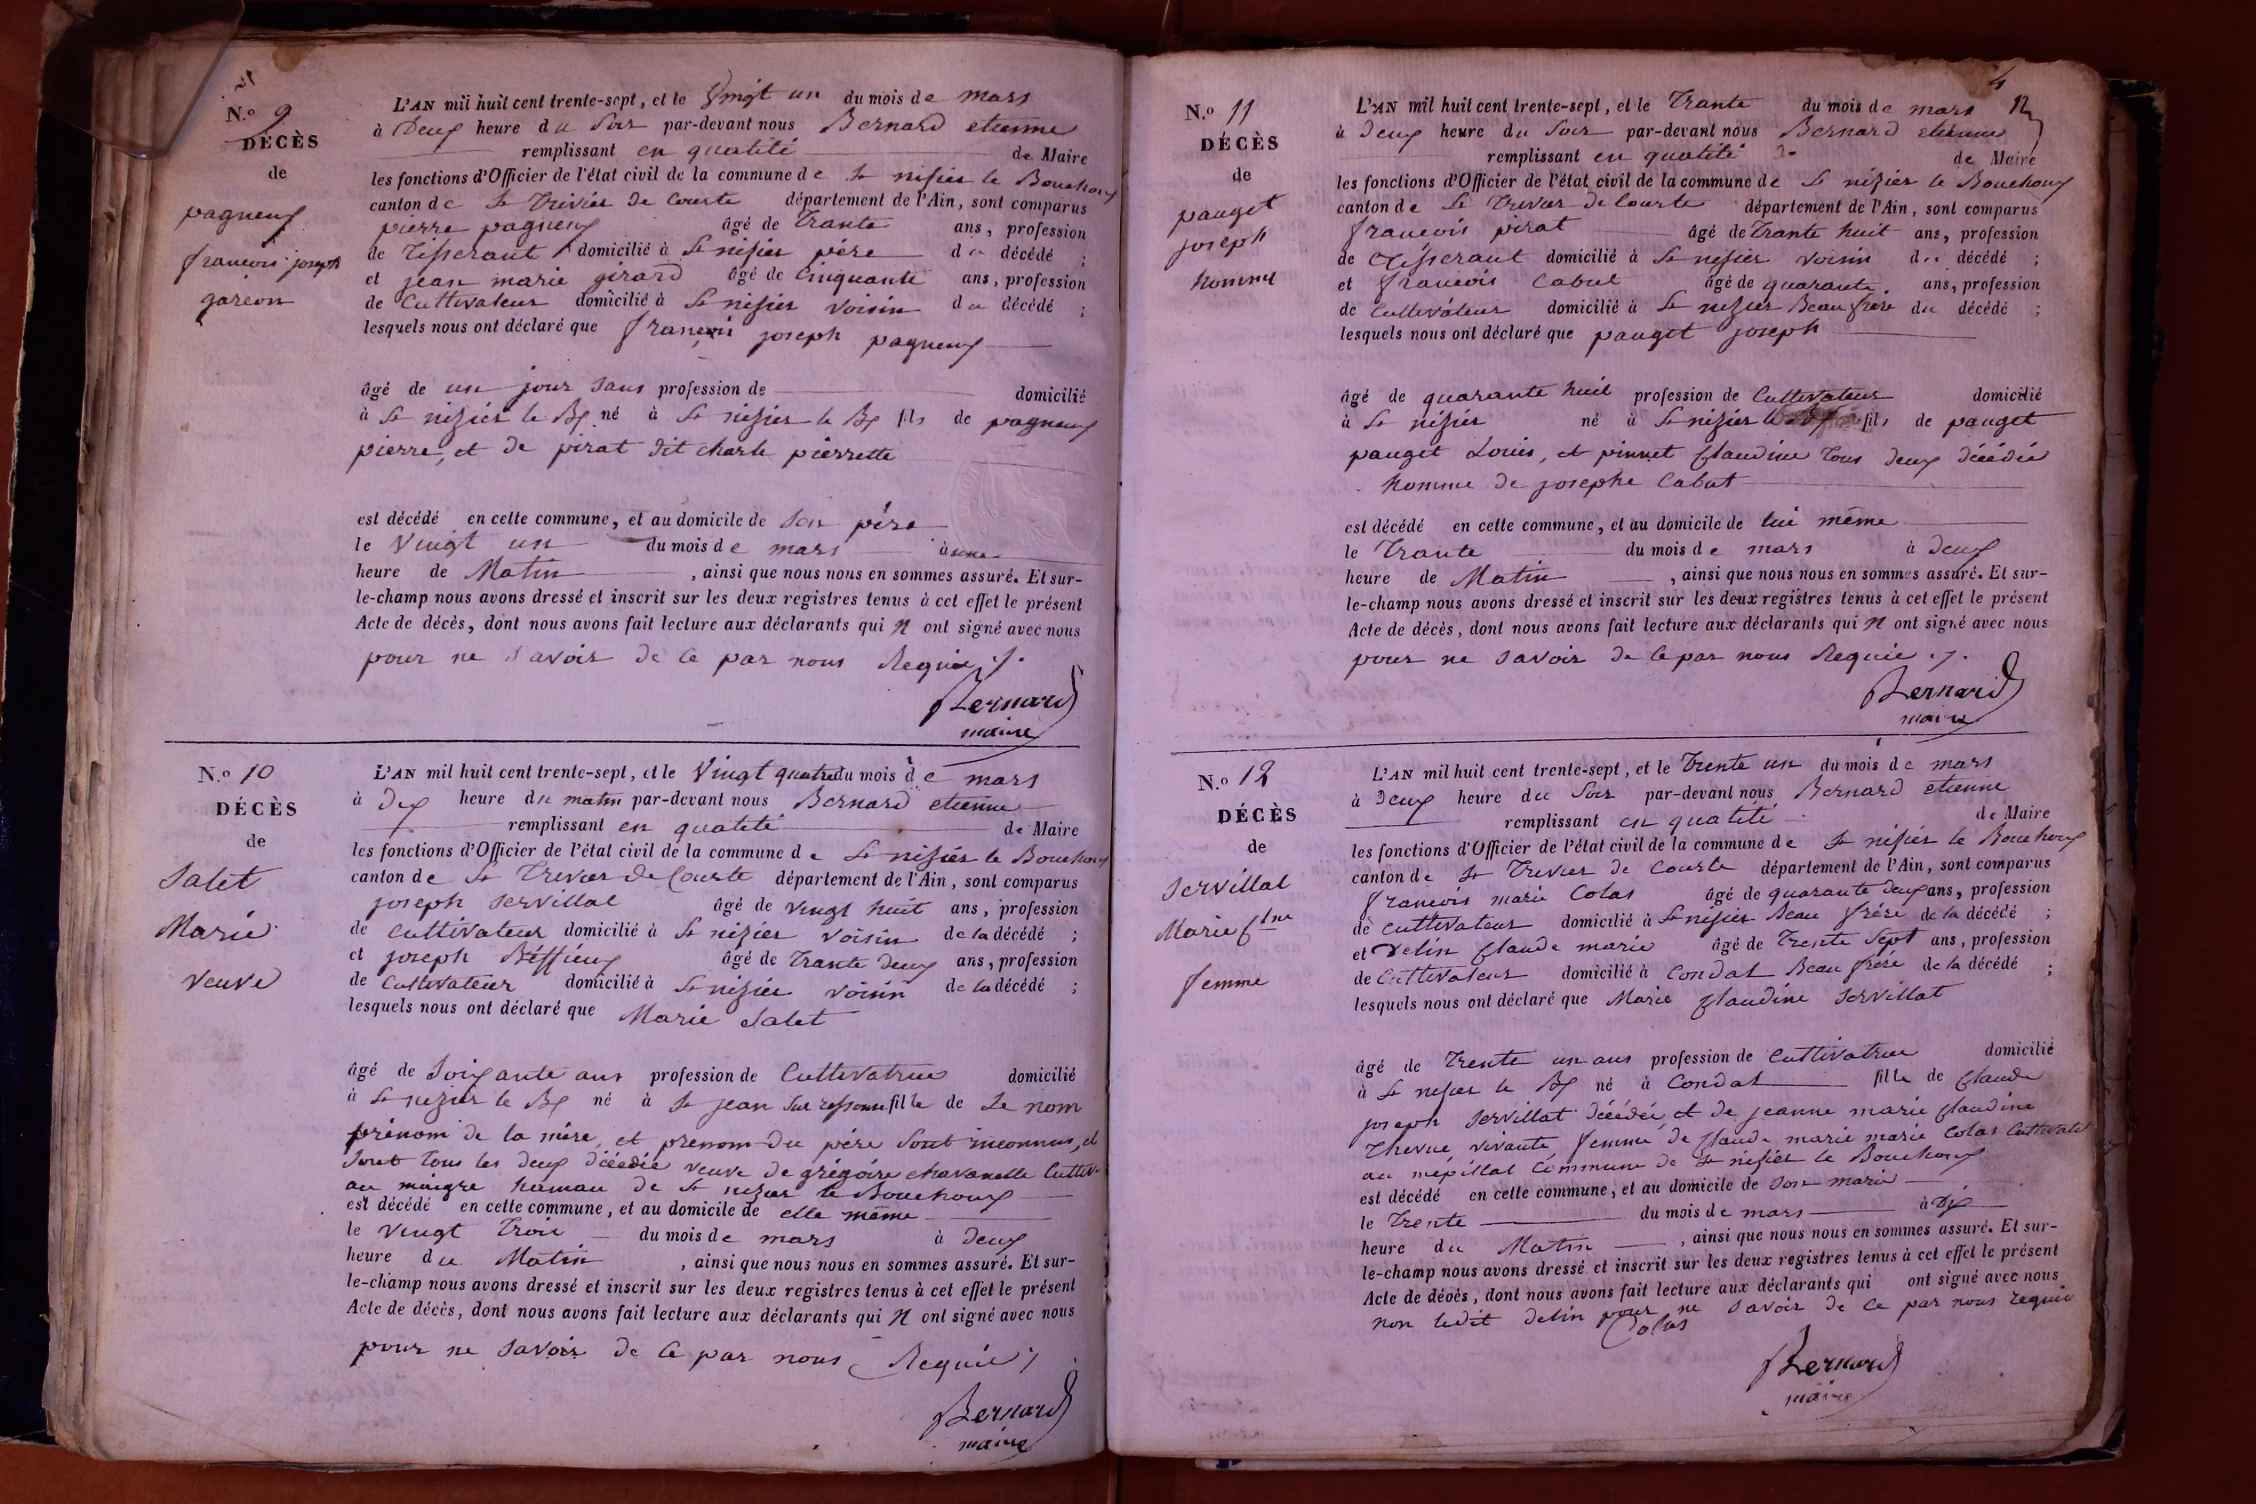 N.o 9
DÉCÈS
de
pagneux
francois joseph
garcon
L'AN mil huit cent trente-sept, et le Vingt un du mois de mars
à Deux heure du Soir par-devant nous Bernard etienne
remplissant en quatité de Maire
les fonctions d'Officier de l'état civil de la commune de St nisier le Bouchoux
canton de St Trivier de Courte département de l'Ain, sont comparus
pierre pagneux âgé de Trante ans, profession
de Tisserant domicilié à St nisier père du décédé ;
et jean marie girard âgé de Cinquante ans, profession
de Cultivateur domicilié à St nisier voisin du décédé ;
lesquels nous ont déclaré que francois joseph pagneux
âgé de un jour Sans profession de domicilié
à St nizier le Bx né à St nizier le Bx fils de pagneux
pierre, et de pirat dit charle pierrette
est décédé en cette commune, et au domicile de Son père
le Vingt un du mois de mars à une
heure de Matin , ainsi que nous nous en sommes assuré. Et sur-
le-champ nous avons dressé et inscrit sur les deux registres tenus à cet effet le présent
Acte de décès, dont nous avons fait lecture aux déclarants qui N ont signé avec nous
pour ne Savoir de Ce par nous Requie ./.
Bernard
maire
N.o 10
DÉCÈS
de
Salet
Marie
veuve
L'AN mil huit cent trente-sept, et le Vingt quatre du mois de mars
à Dix heure du matin par-devant nous Bernard etienne
remplissant en quatité de Maire
les fonctions d'Officier de l'état civil de la commune de St nisier le Bouchoux
canton de St Trivier de Courte département de l'Ain, sont comparus
joseph Servillat âgé de vingt huit ans, profession
de Cultivateur domicilié à St nizier voisin de la décédé ;
et joseph âgé de Trante deux ans, profession
de Cultivateur domicilié à St nizier voisin de la décédé ;
lesquels nous ont déclaré que Marie Salet
âgé de Soixante ans profession de Cultivatrice domicilié
à St nizier le Bx né à St jean Sur ressouse fille de Le nom
prénom de la mère, et prenom du père Sont inconnus, et
Sont Tous les deux décedée veuve de grégoire chavanelle Cultiv
au maigre hamau de St nizier le Bouchoux
est décédé en cette commune, et au domicile de elle même
le vingt Trois du mois de mars à deux
heure du Matin , ainsi que nous nous en sommes assuré. Et sur-
le-champ nous avons dressé et inscrit sur les deux registres tenus à cet effet le présent
Acte de décès, dont nous avons fait lecture aux déclarants qui N ont signé avec nous
pour ne Savoir de Ce par nous Requie ./
Bernard
maire
4
12
N.o 11
DÉCÈS
de
pauget
joseph
homme
L'AN mil huit cent trente-sept, et le Trante du mois de mars
à deux heure du Soir par-devant nous Bernard etienne
remplissant en quatité de Maire
les fonctions d'Officier de l'état civil de la commune de St nizier le Bouchoux
canton de St Trivier de Courte département de l'Ain, sont comparus
francois pirat âgé de Trante huit ans, profession
de Tisseraut domicilié à St nisier voisin du décédé ;
et francois Cabut âgé de quarante ans, profession
de Cultivateur domicilié à St nizier Beau frère du décédé ;
lesquels nous ont déclaré que pauget joseph
âgé de quarante huit profession de Cultivateur domicilié
à St nizier né à St nizier le Bx fils de pauget
pauget Louis, et pinnet Claudine Tous deux décédée
homme de josephe Cabut
est décédé en cette commune, et au domicile de lui même
le Trante du mois de mars à deux
heure de Matin , ainsi que nous nous en sommes assuré. Et sur-
le-champ nous avons dressé et inscrit sur les deux registres tenus à cet effet le présent
Acte de décès, dont nous avons fait lecture aux déclarants qui N ont signé avec nous
pour ne Savoir de Ce par nous Requie ./.
Bernard
maire
N.o 12
DÉCÈS
de
Servillat
Marie Cdne
femme
L'AN mil huit cent trente-sept, et le Trente un du mois de mars
à Deux heure du Soir par-devant nous Bernard etienne
remplissant en quatité de Maire
les fonctions d'Officier de l'état civil de la commune de St nisier le Bouchoux
canton de St Trivier de Courte département de l'Ain, sont comparus
francois marie Colas âgé de quarante deux ans, profession
de Cultivateur domicilié à St nisier Beau frère de la décédé ;
et Delin Claude marie âgé de Trente Sept ans, profession
de Cultivateur domicilié à Condat Beau frère de la décédé ;
lesquels nous ont déclaré que Marie Claudine Servillat
âgé de Trente un ans profession de Cultivatrice domicilié
à St nisier le Bx né à Condat fille de Claude
joseph Servillat décédée, et de jeanne marie Claudine
Thevne vivante, femme de Claude marie marie Colas Cultivat
au mépillat Commune de St nisier le Bouchoux
est décédé en cette commune, et au domicile de Son marie
le Trente du mois de mars à Dix
heure du Matin , ainsi que nous nous en sommes assuré. Et sur-
le-champ nous avons dressé et inscrit sur les deux registres tenus à cet effet le présent
Acte de décès, dont nous avons fait lecture aux déclarants qui ont signé avec nous
non ledit delin pour ne Savoir de Ce par nous requie
Colas
Bernard
maire